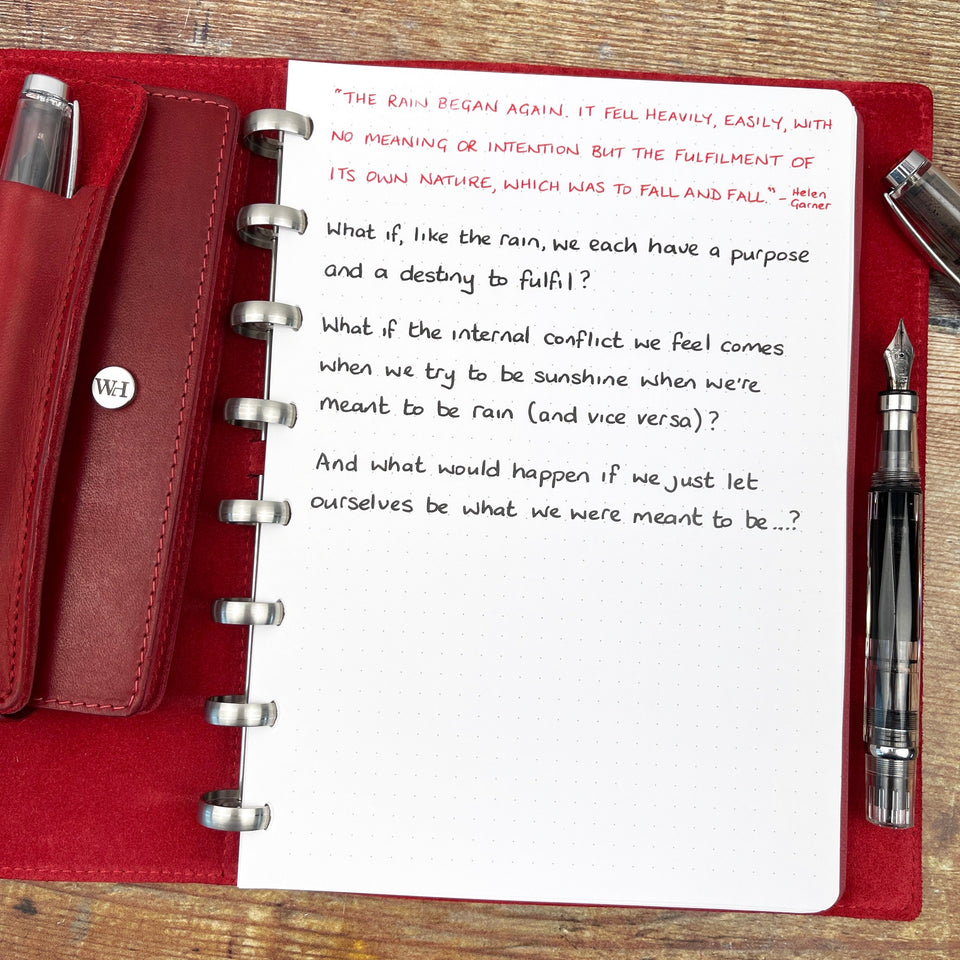 "THE RAIN BEGAN AGAIN. IT FELL HEAVILY, EASILY, WITH
NO MEANING OR INTENTION BUT THE FULFILMENT OF
ITS OWN NATURE, WHICH WAS TO FALL AND FALL." - Helen
Garner
What if, like the rain, we each have a purpose
and a destiny to fulfil?
What if the internal conflict we feel comes
when we try to be sunshine when we're
meant to be rain (and vice versa)?
And what would happen if we just let
ourselves be what we were meant to be...?
WH